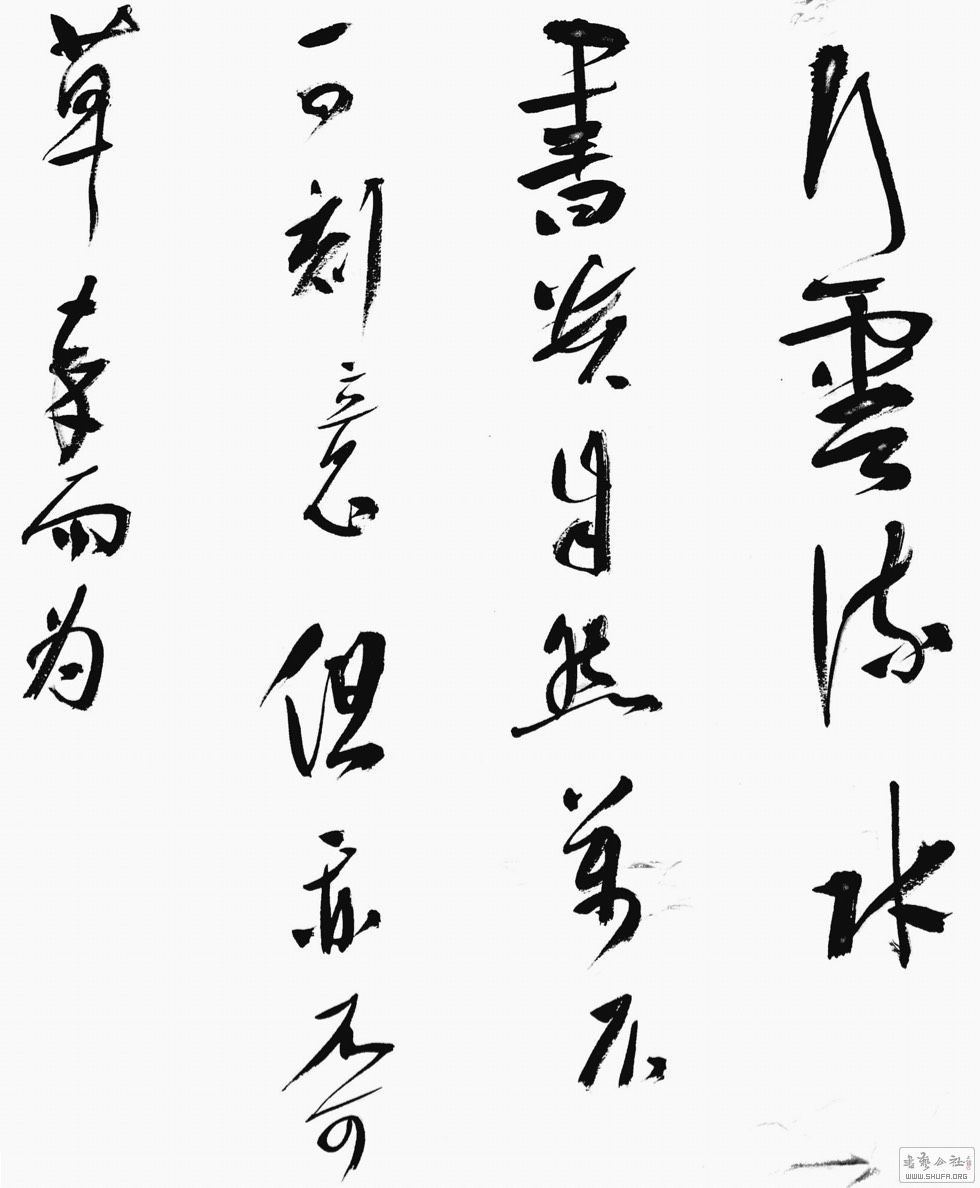 行雲流水
書貴自然萬不
可刻意但亦不可
草率而为
書藝公社
WWW.SHUFA.ORG